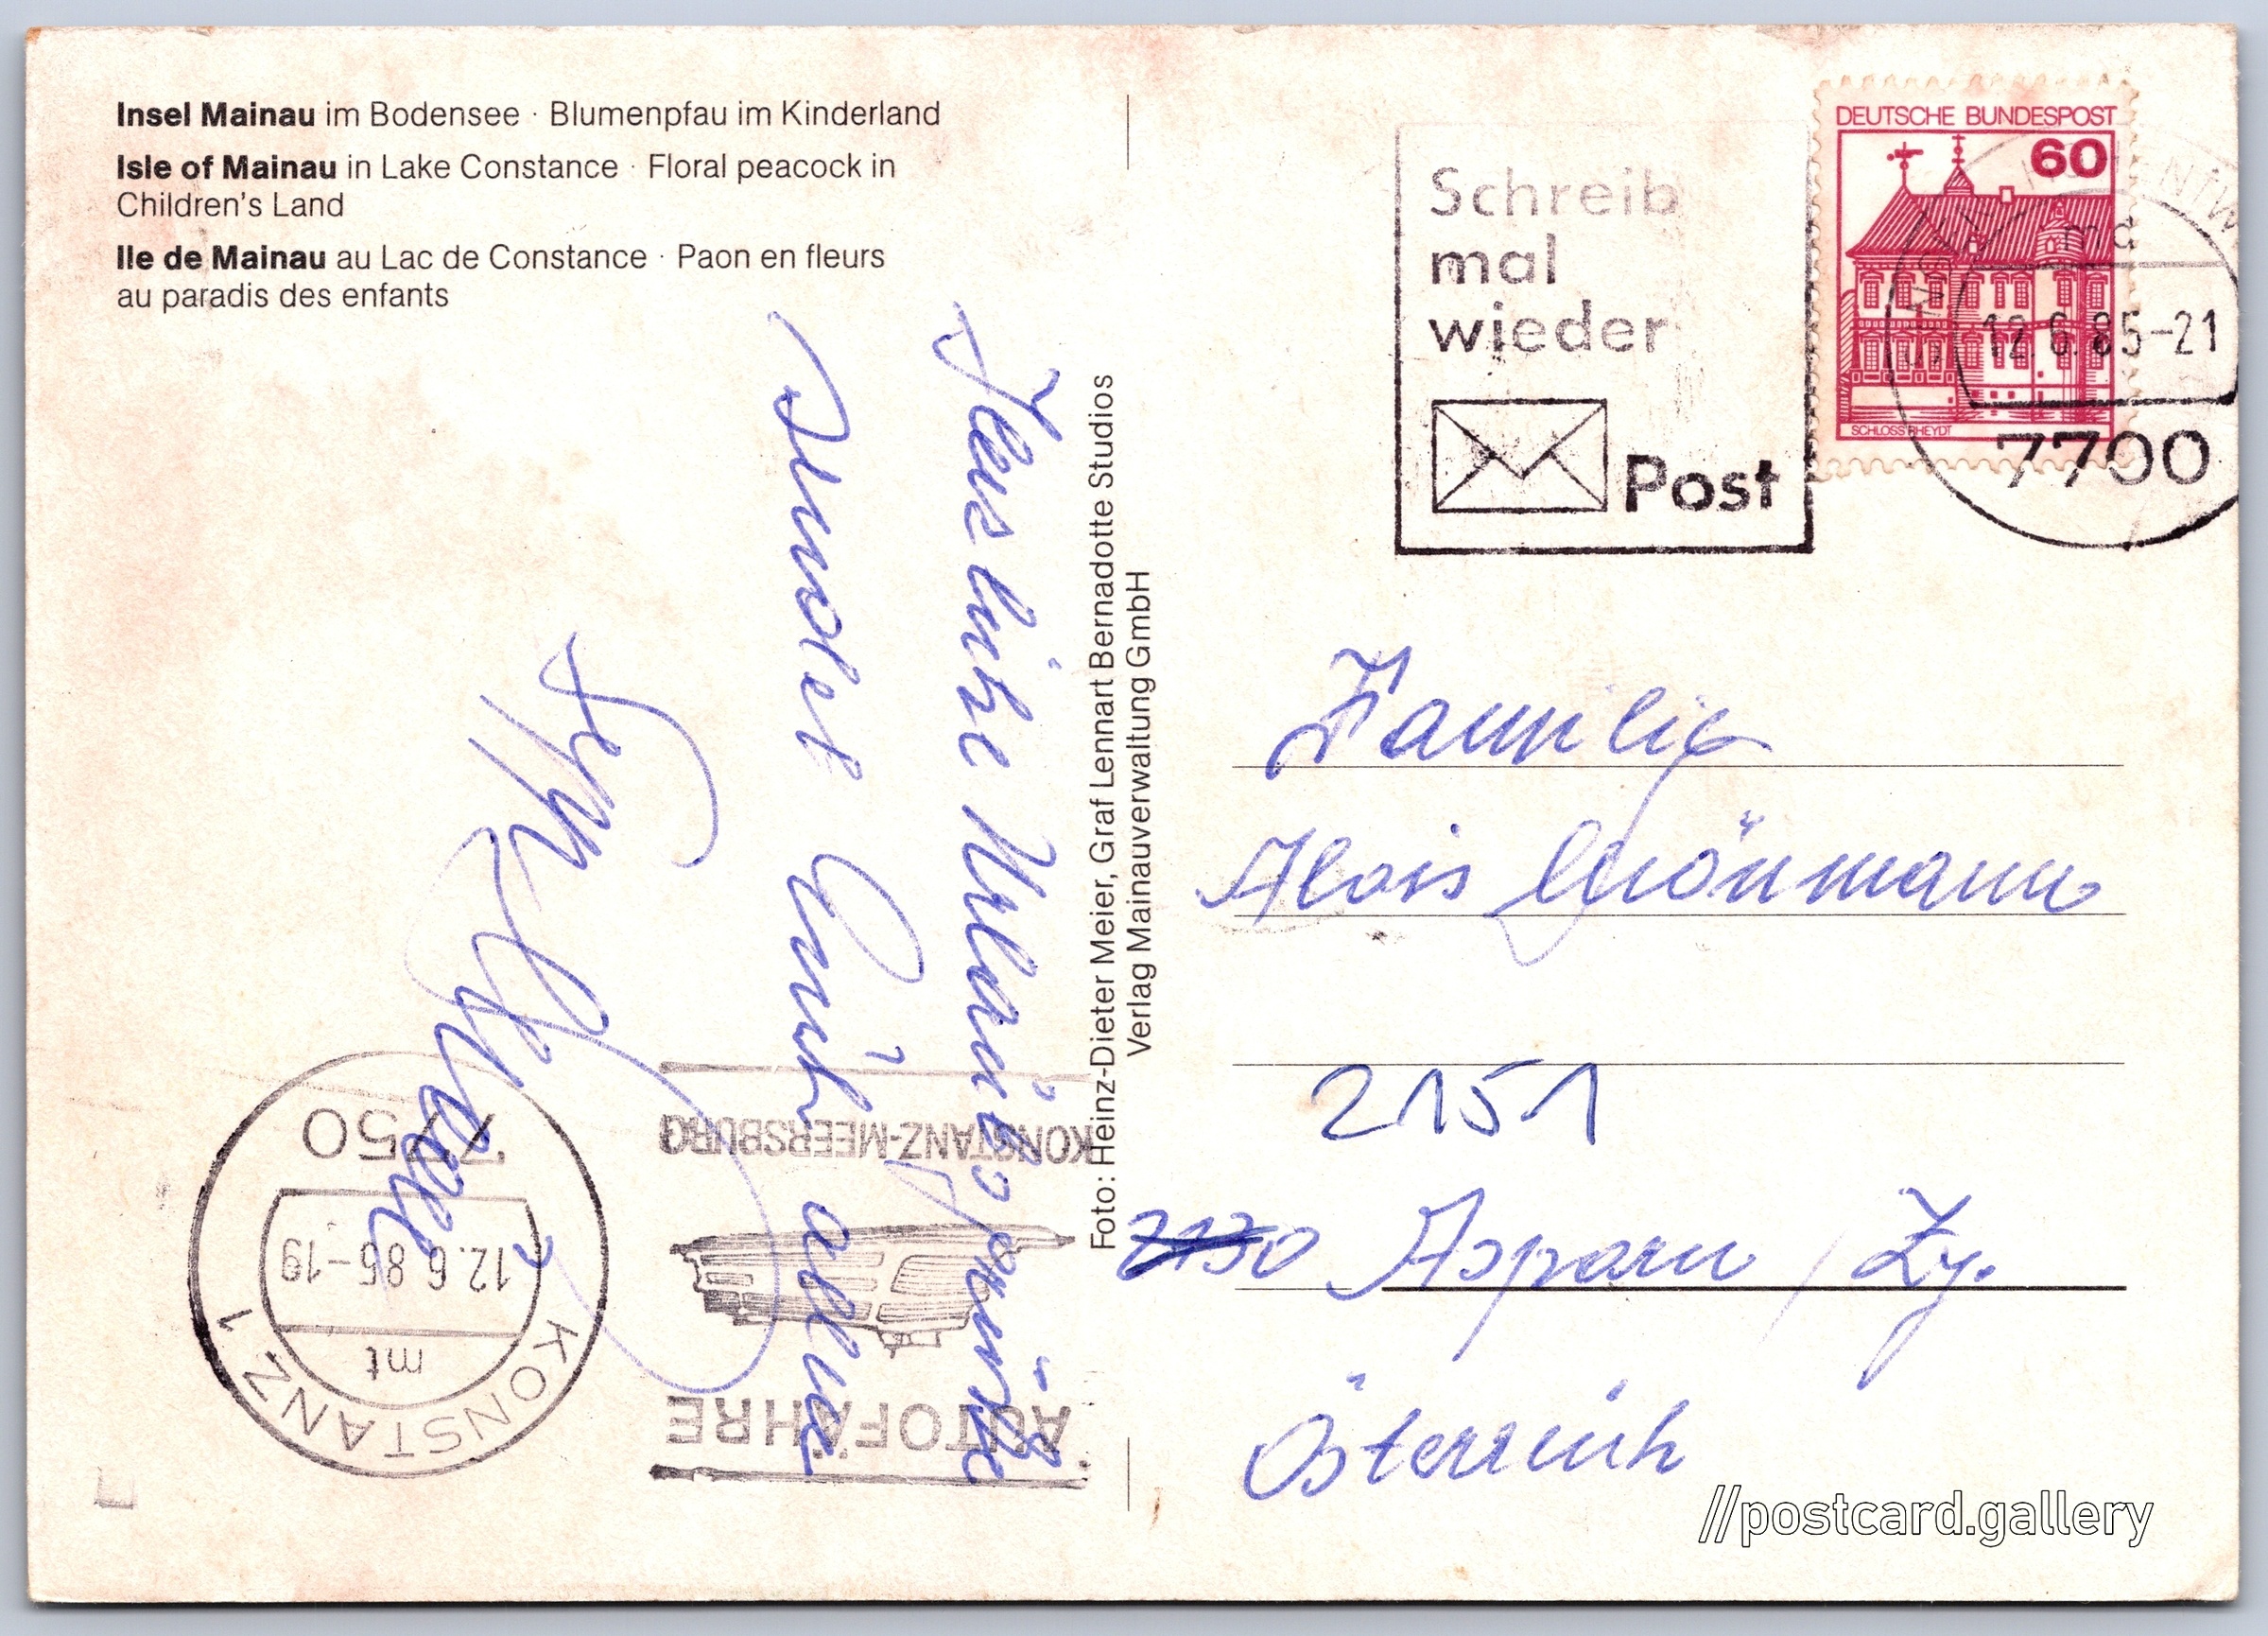 Insel Mainau im Bodensee · Blumenpfau im Kinderland
Isle of Mainau in Lake Constance · Floral peacock in
Children's Land
Ile de Mainau au Lac de Constance · Paon en fleurs
au paradis des enfants
Herzliche Urlaubsgrüße
sendet Euch allen
Foto: Heinz-Dieter Meier, Graf Lennart Bernadotte Studios
Verlag Mainauverwaltung GmbH
KONSTANZ-MEERSBURG
AUTOFÄHRE
7750
12.6.85-19
mt
KONSTANZ 1
Schreib
mal
wieder
Post
DEUTSCHE BUNDESPOST
60
SCHLOSS RHEYDT
md
12.6.85-21
7700
Familie
Alois
2151
2130 Asparn / Zy.
Österreich
//postcard.gallery